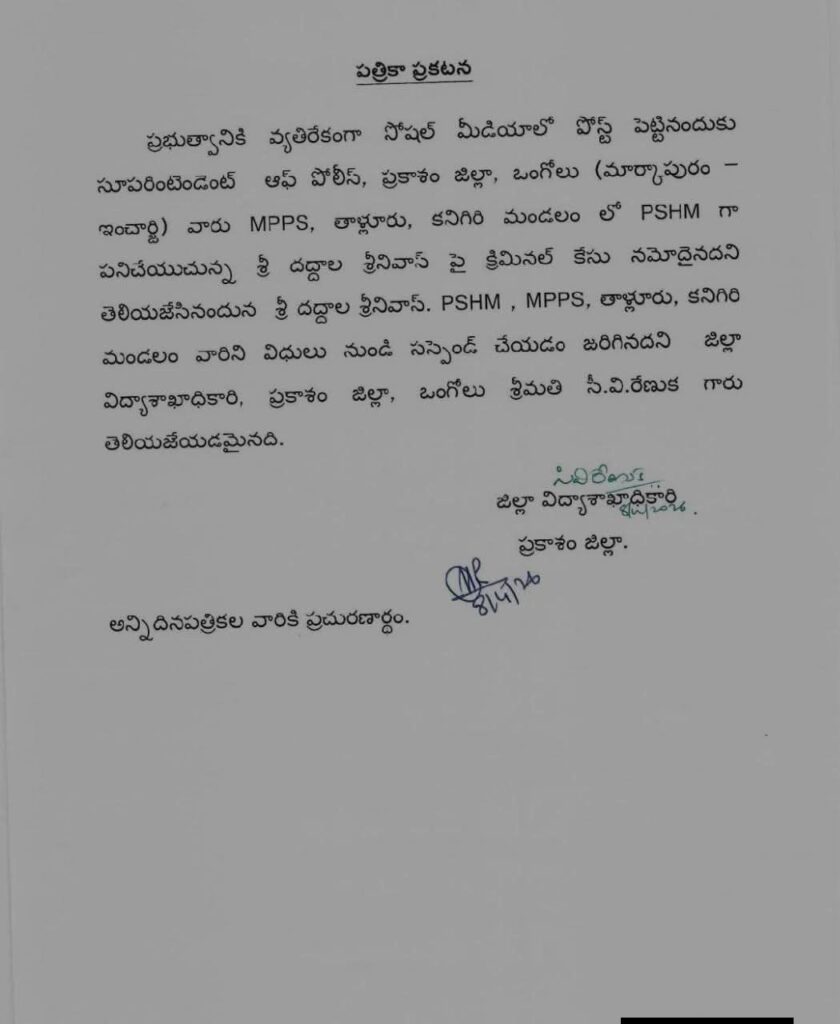 పత్రికా ప్రకటన
ప్రభుత్వానికి వ్యతిరేకంగా సోషల్ మీడియాలో పోస్ట్ పెట్టినందుకు
సూపరింటెండెంట్ ఆఫ్ పోలీస్, ప్రకాశం జిల్లా, ఒంగోలు (మార్కాపురం –
ఇంచార్జి) వారు MPPS, తాళ్లూరు, కనిగిరి మండలం లో PSHM గా
పనిచేయుచున్న శ్రీ దద్దాల శ్రీనివాస్ పై క్రిమినల్ కేసు నమోదైనదని
తెలియజేసినందున శ్రీ దద్దాల శ్రీనివాస్. PSHM , MPPS, తాళ్లూరు, కనిగిరి
మండలం వారిని విధులు నుండి సస్పెండ్ చేయడం జరిగినదని జిల్లా
విద్యాశాఖాధికారి, ప్రకాశం జిల్లా, ఒంగోలు శ్రీమతి సీ.వి.రేణుక గారు
తెలియజేయడమైనది.
జిల్లా విద్యాశాఖాధికారి
ప్రకాశం జిల్లా.
8/4/26
అన్ని దినపత్రికల వారికి ప్రచురణార్థం.